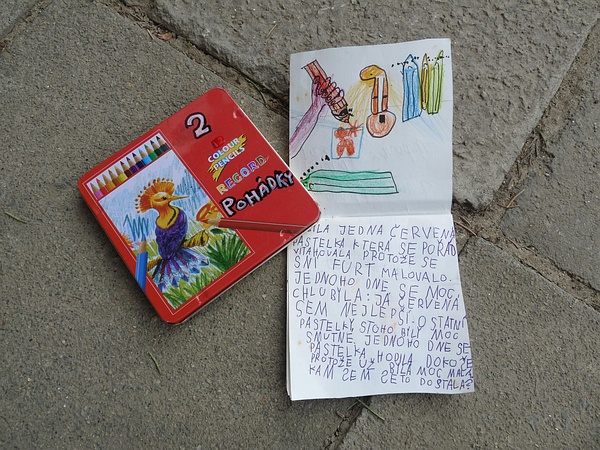 2
COLOUR
PENCILS
RECORD
POHÁDKY
BYLA JEDNA ČERVENÁ
PASTELKA KTERÁ SE POŘÁD
VITAHOVALA PROTOŽE SE
SNÍ FURT MALOVALO.
JEDNOHO DNE SE MOC
CHLUBYLA: JÁ ČERVENÁ
SEM NEJLEPČÍ. OSTATNÍ
PASTELKY STOHO BYLY MOC
SMUTNÉ. JEDNOHO DNE SE
PASTELKA HODILA DO KOŠE
PROTOŽE UŽ BYLA MOC MALÁ
KAM SEM SE TO DOSTALA?